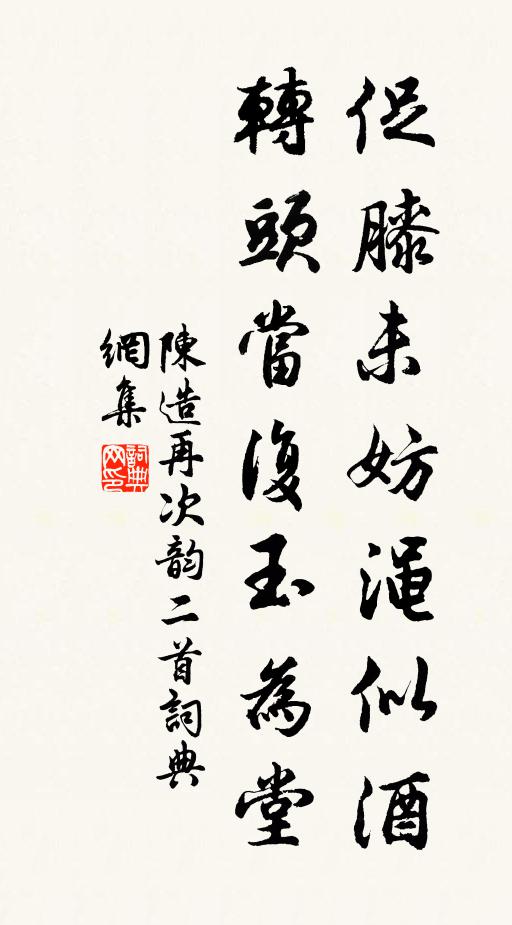 促膝未妨渑似酒
轉頭當復玉為堂
陳造再次韵二首詞典
網集
詞典
网印